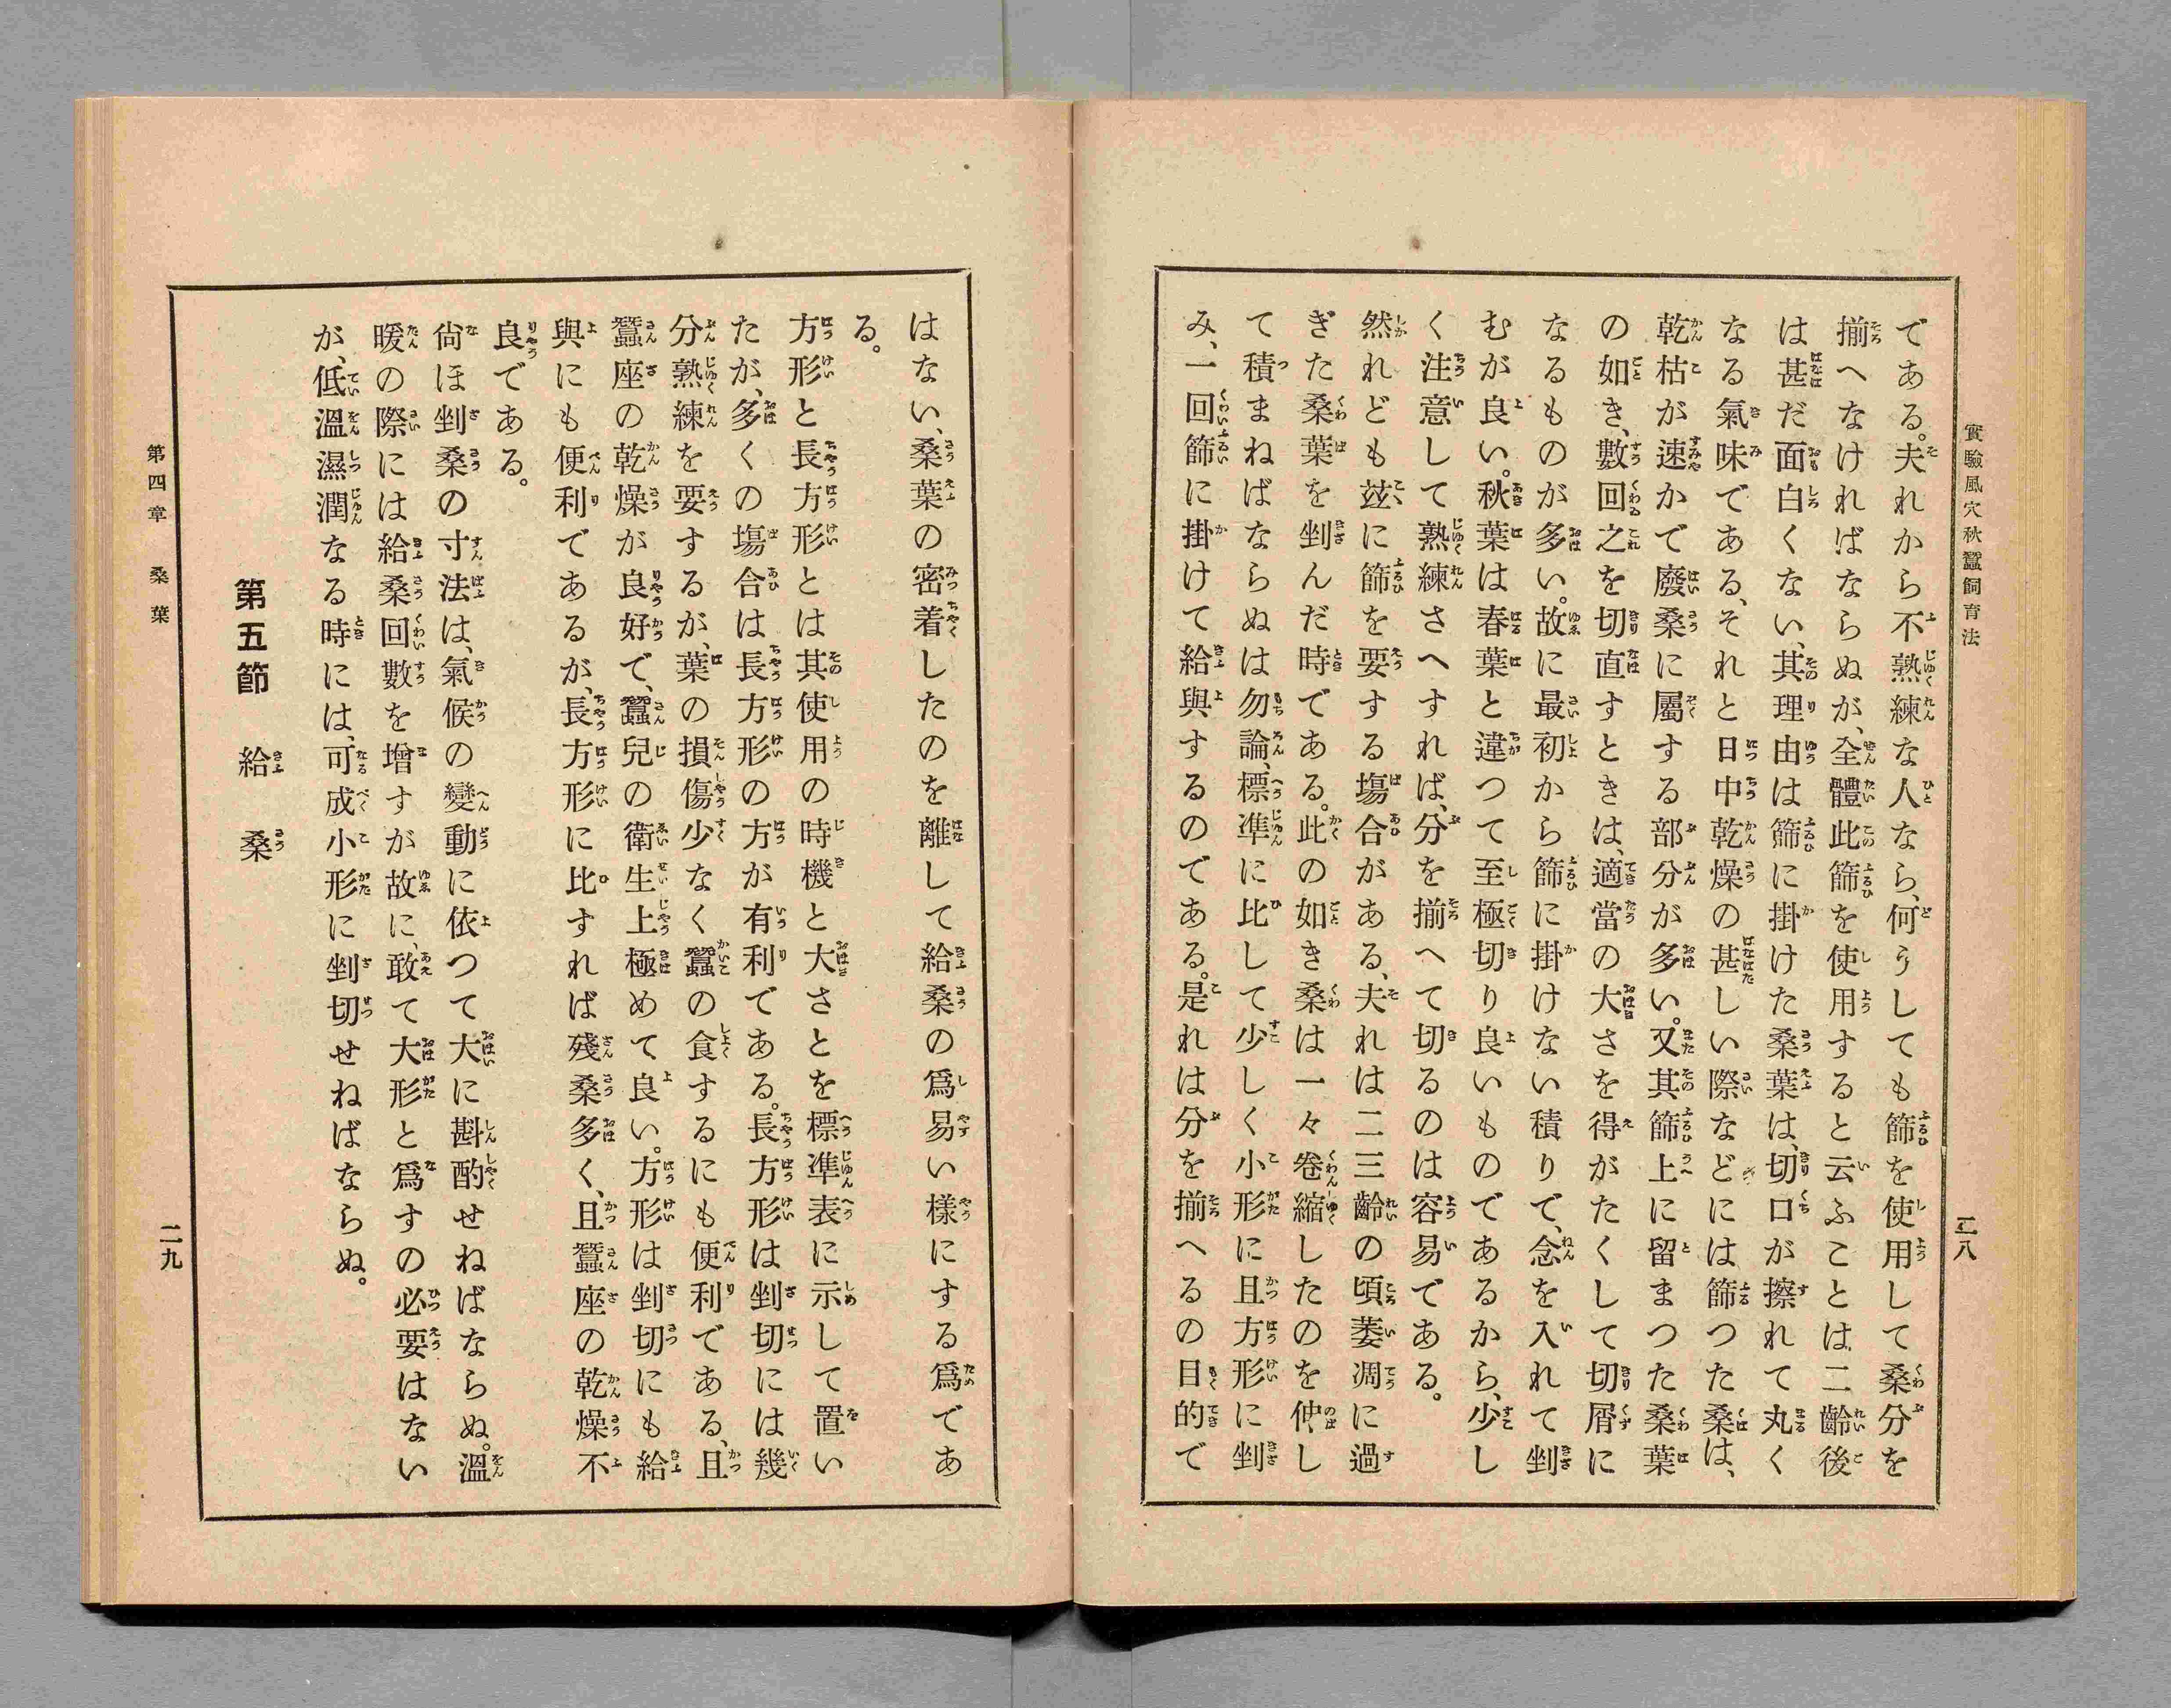 實驗風穴秋蠶飼育法
二八
である。夫れから不熟練な人なら、何うしても篩を使用して桑分を
揃へなければならぬが、全體此篩を使用すると云ふことは二齡後
は甚だ面白くない、其理由は篩に掛けた桑葉は、切口が擦れて丸く
なる氣味である、それと日中乾燥の甚しい際などには篩つた桑は、
乾枯が速かで廢桑に屬する部分が多い。又其篩上に留まつた桑葉
の如き、數回之を切直すときは、適當の大さを得がたくして切屑に
なるものが多い。故に最初から篩に掛けない積りで、念を入れて剉
むが良い。秋葉は春葉と違つて至極切り良いものであるから、少し
く注意して熟練さへすれば、分を揃へて切るのは容易である。
然れども玆に篩を要する塲合がある、夫れは二三齡の頃萎凋に過
ぎた桑葉を剉んだ時である。此の如き桑は一々卷縮したのを伸し
て積まねばならぬは勿論、標準に比して少しく小形に且方形に剉
み、一回篩に掛けて給與するのである。是れは分を揃へるの目的で
はない、桑葉の密着したのを離して給桑の爲易い樣にする爲であ
る。
方形と長方形とは其使用の時機と大さとを標準表に示して置い
たが、多くの塲合は長方形の方が有利である。長方形は剉切には幾
分熟練を要するが、葉の損傷少なく蠶の食するにも便利である、且
蠶座の乾燥が良好で、蠶兒の衛生上極めて良い。方形は剉切にも給
與にも便利であるが、長方形に比すれば殘桑多く、且蠶座の乾燥不
良である。
尙ほ剉桑の寸法は、氣候の變動に依つて大に斟酌せねばならぬ。溫
暖の際には給桑回數を增すが故に、敢て大形と爲すの必要はない
が、低溫濕潤なる時には、可成小形に剉切せねばならぬ。
第五節　給桑
第四章　桑葉
二九